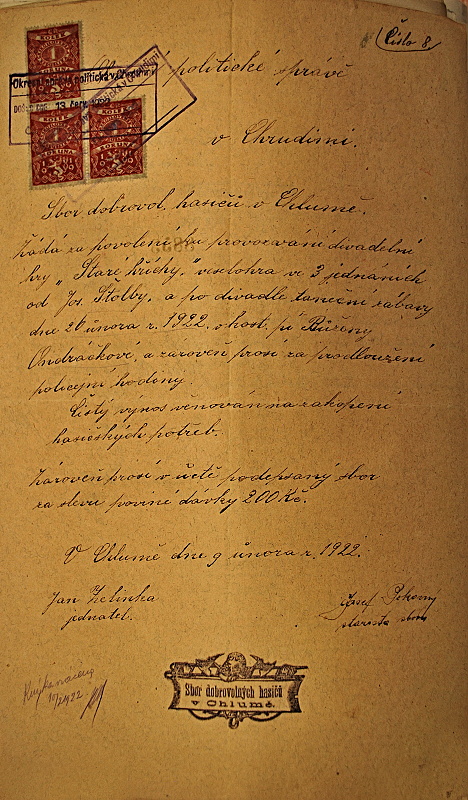 Číslo 8
politické správě
v Chrudimi.
Sbor dobrovol. hasičů v Chlumě.
žádá za povolení ku provozování divadelní
hry „Staré hříchy", veselohra ve 3 jednáních
od Jos. Štolby, a po divadle taneční zábavy
dne 26 února r. 1922, v host. pí Růženy
Ondráčkové, a zároveň prosí za prodloužení
policejní hodiny.
Čistý výnos věnován na zakopení
hasičských potřeb.
Zároveň prosí v úctě podepsaný sbor
za slevu poviné dávky 200 Kč.
V Chlumě dne 9 února r. 1922.
Jan Zelinka
jednatel.
Josef Pokorny
starosta sboru
Sbor dobrovolných hasičů
v Chlumě.